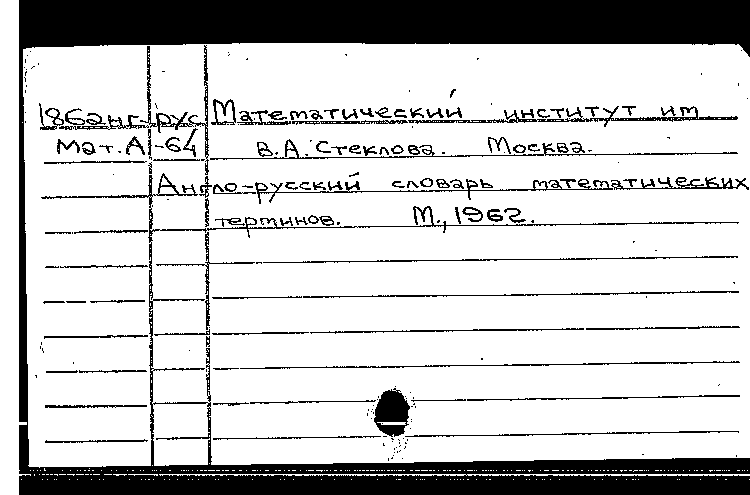 186анг-рус Математический институт им
Мат.А-64 В.А.Стеклова. Москва.
Англо-русский словарь математических
терминов. М., 1962.